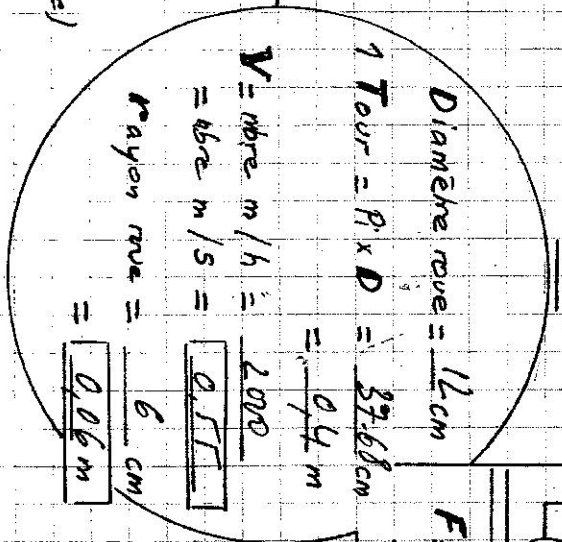 Diamètre roue = 12 cm
1 Tour = Pi x D = 37.68 cm
= 0,4 m
V = nbre m/h = 2000
= nbre m/s = 0,55
rayon roue = 6 cm
= 0,06 m
F